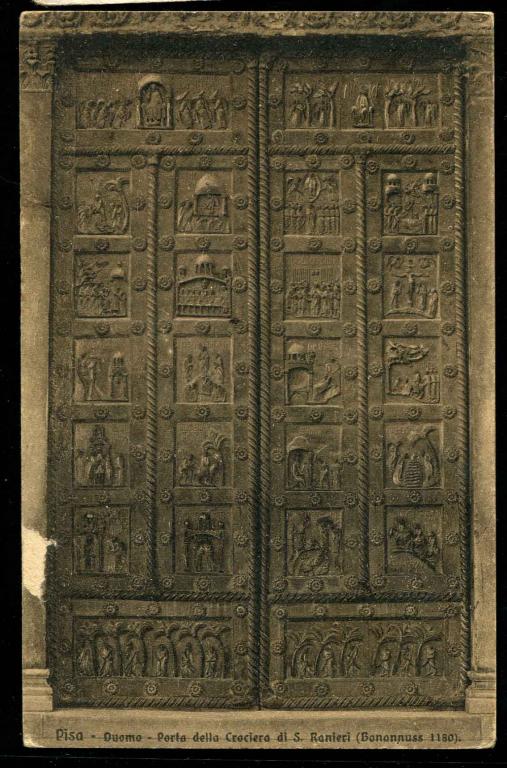 Pisa - Duomo - Porta della Crociera di S. Ranieri (Bonannuss 1180).